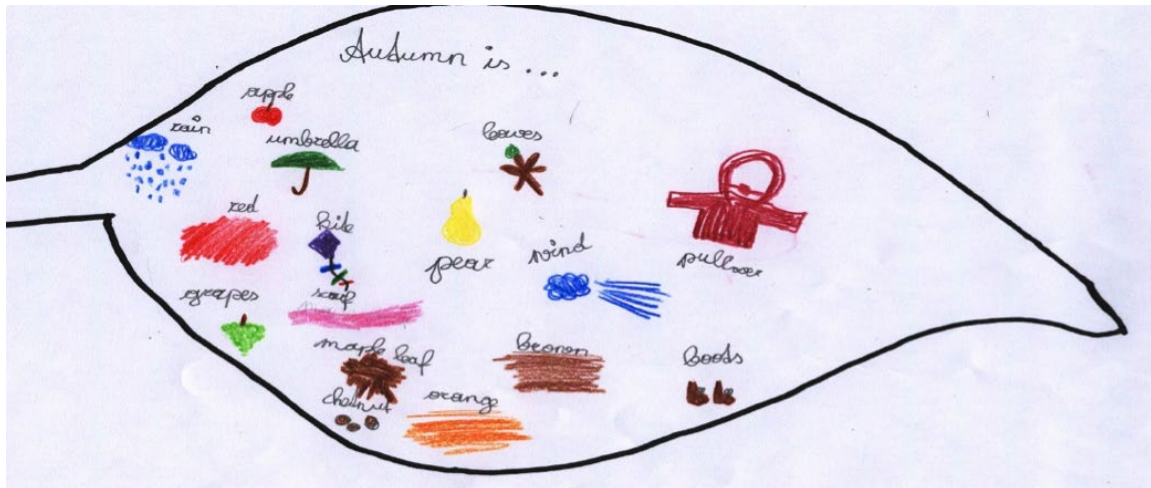 Autumn is ...
apple
rain
umbrella
leaves
red
kite
pear
wind
pullover
grapes
scarf
maple leaf
brown
boots
chetnut
orange